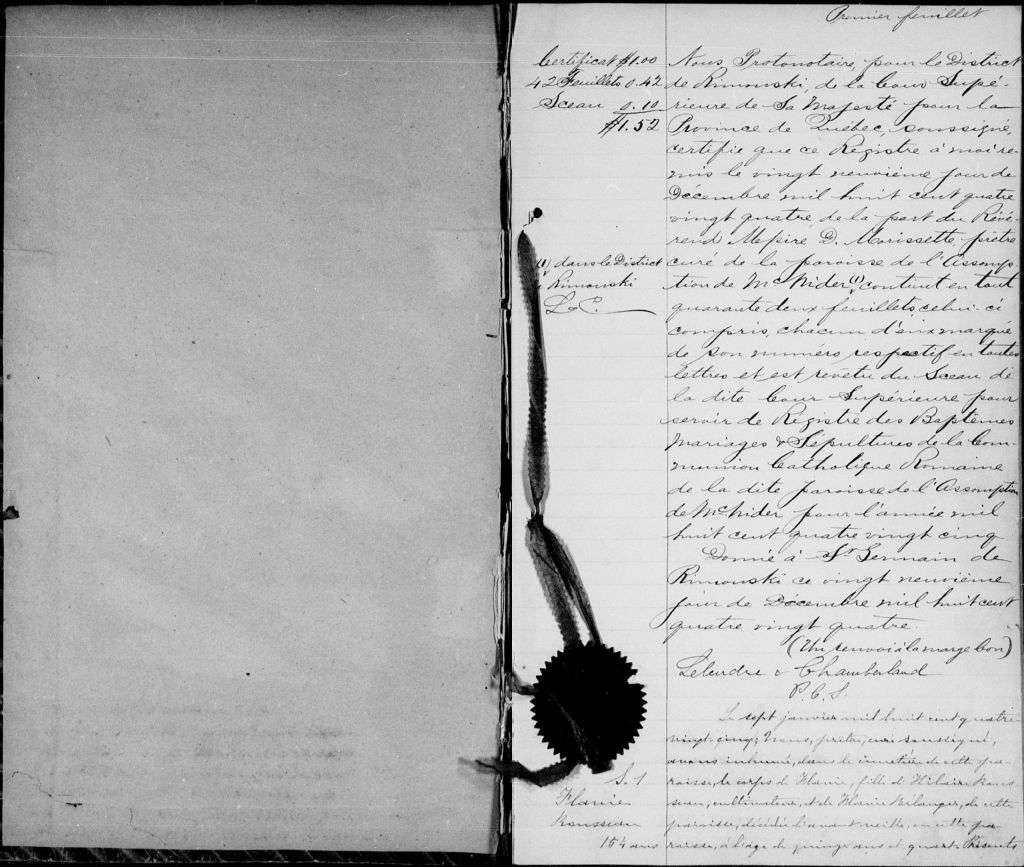 Premier feuillet
Certificat $1.00
42 Feuillets 0.42
Sceau 0.10
$1.52
(1) dans le District
Rimouski
L. C.
Nous Protonotaire, pour le District
de Rimouski, de la Cour Supé-
rieure de Sa Majesté pour la
Province de Québec, soussigné,
certifie que ce Régistre à moi re-
mis le vingt neuvième jour de
Décembre mil huit cent quatre
vingt quatre de la part du Révé-
rend Messire D. Morissette prêtre
curé de la paroisse de l'Assomp
tion de McNider (1) contient en tout
quarante deux feuillets celui-ci
compris, chacun d'eux marqué
de son numéro respectif en toutes
lettres et est revêtu du Sceau de
la dite Cour Supérieure pour
servir de Régistre des Baptêmes
Mariages & Sépultures de la Com-
munion Catholique Romaine
de la dite paroisse de l'Assomption
de McNider pour l'année mil
huit cent quatre vingt cinq
Donné à St Germain de
Rimouski ce vingt neuvième
jour de Décembre mil huit cent
quatre vingt quatre.
(Un renvoi à la marge bon)
Letendre & Chamberland
P.C.S.
S. 1
Flavie
Rousseau
15¼ ans
Le sept janvier mil huit cent quatre
vingt-cinq, Nous, prêtre, curé soussigné,
avons inhumé, dans le cimetière de cette pa-
roisse, le corps de Flavie, fille d'Hilaire Rous
seau, cultivateur, et de Flavie Bélanger, de cette
paroisse, décédée l'avant veille, en cette pa-
roisse, à l'âge de quinze ans et quart. Présents